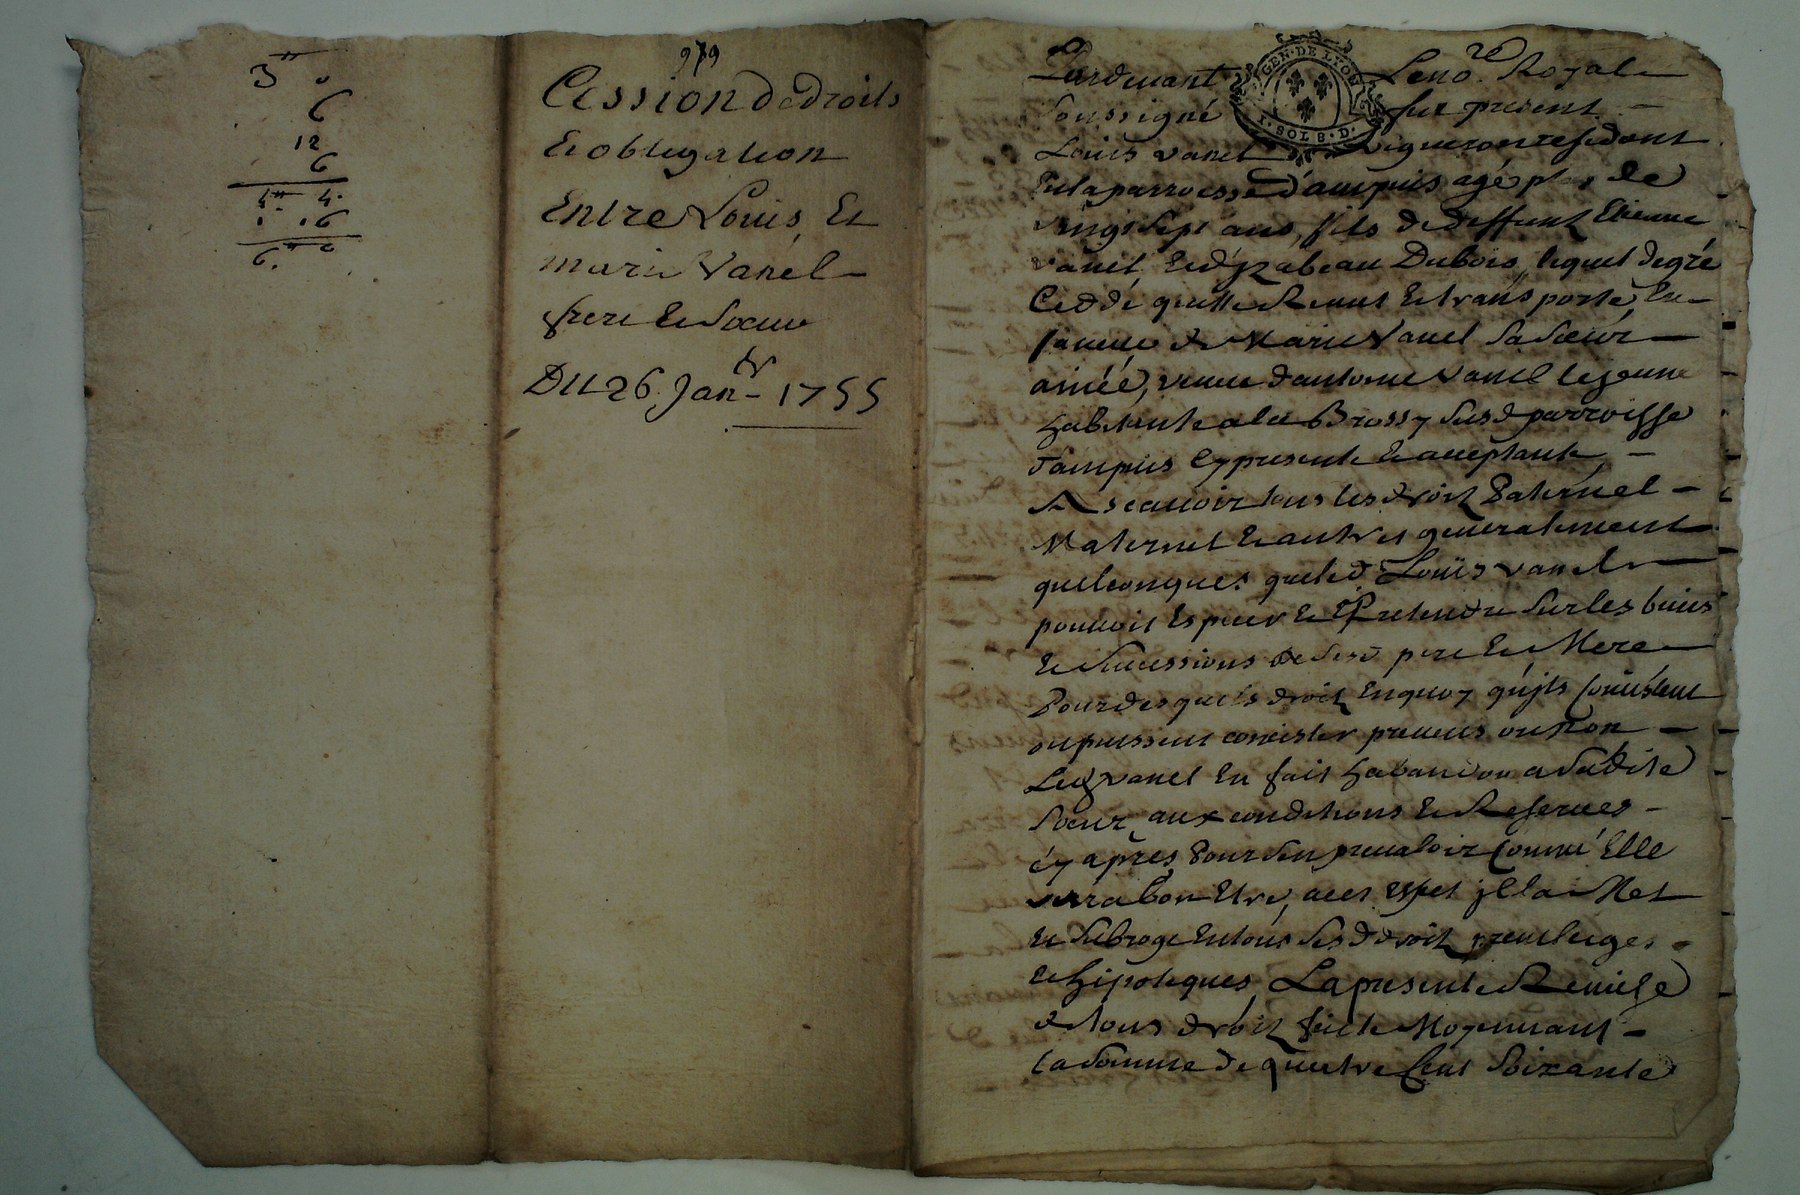 3" 0
6
12
6
4" 4.
1. 16
6." 0
979
Cession de droits
Et obligation
Entre Louis Et
marie Vanel
frere Et Soeur
Du 26 Janer 1755
GEN. DE LYON
1. SOL 8. D.
Pardevant Le nore Royal
Soussigné fut present
Louis vanel vigneron residant
En la parroisse d'ampuis agé plus de
vingt Sept ans, fils de deffunt Etienne
vanel Et d'yzabeau Dubois, lequel de gré
Cedde quitte Remet Et transporte En
faveur de Marie Vanel Sa Soeur
ainée, veuve d'antoine Vanel le jeune
habitante a la Brossy Susd parroisse
d'ampuis Cy presente Et acceptante
A Scauoir tous les droit Paternel
Maternel Et autres generalement
quelconques que led Louis vanel
pouuoit Esperer Et Pretendre Sur les biens
Et Successions de Sesd pere Et Mere
Pour desquels droit En quoy qu'jls Consistent
ou puissent consister preuus ou non
Led vanel En fait habandon a Sadite
Soeur aux conditions Et Reserues
cy apres Pour S'en preualoir Comme Elle
verra bon Etre, a cet Effet jl la Met
Et Subroge En tous Sesd droit preuileges
Et hipoteques La presente Remise
de tous droit faite Moyennant
la Somme de quatre Cent Soixante